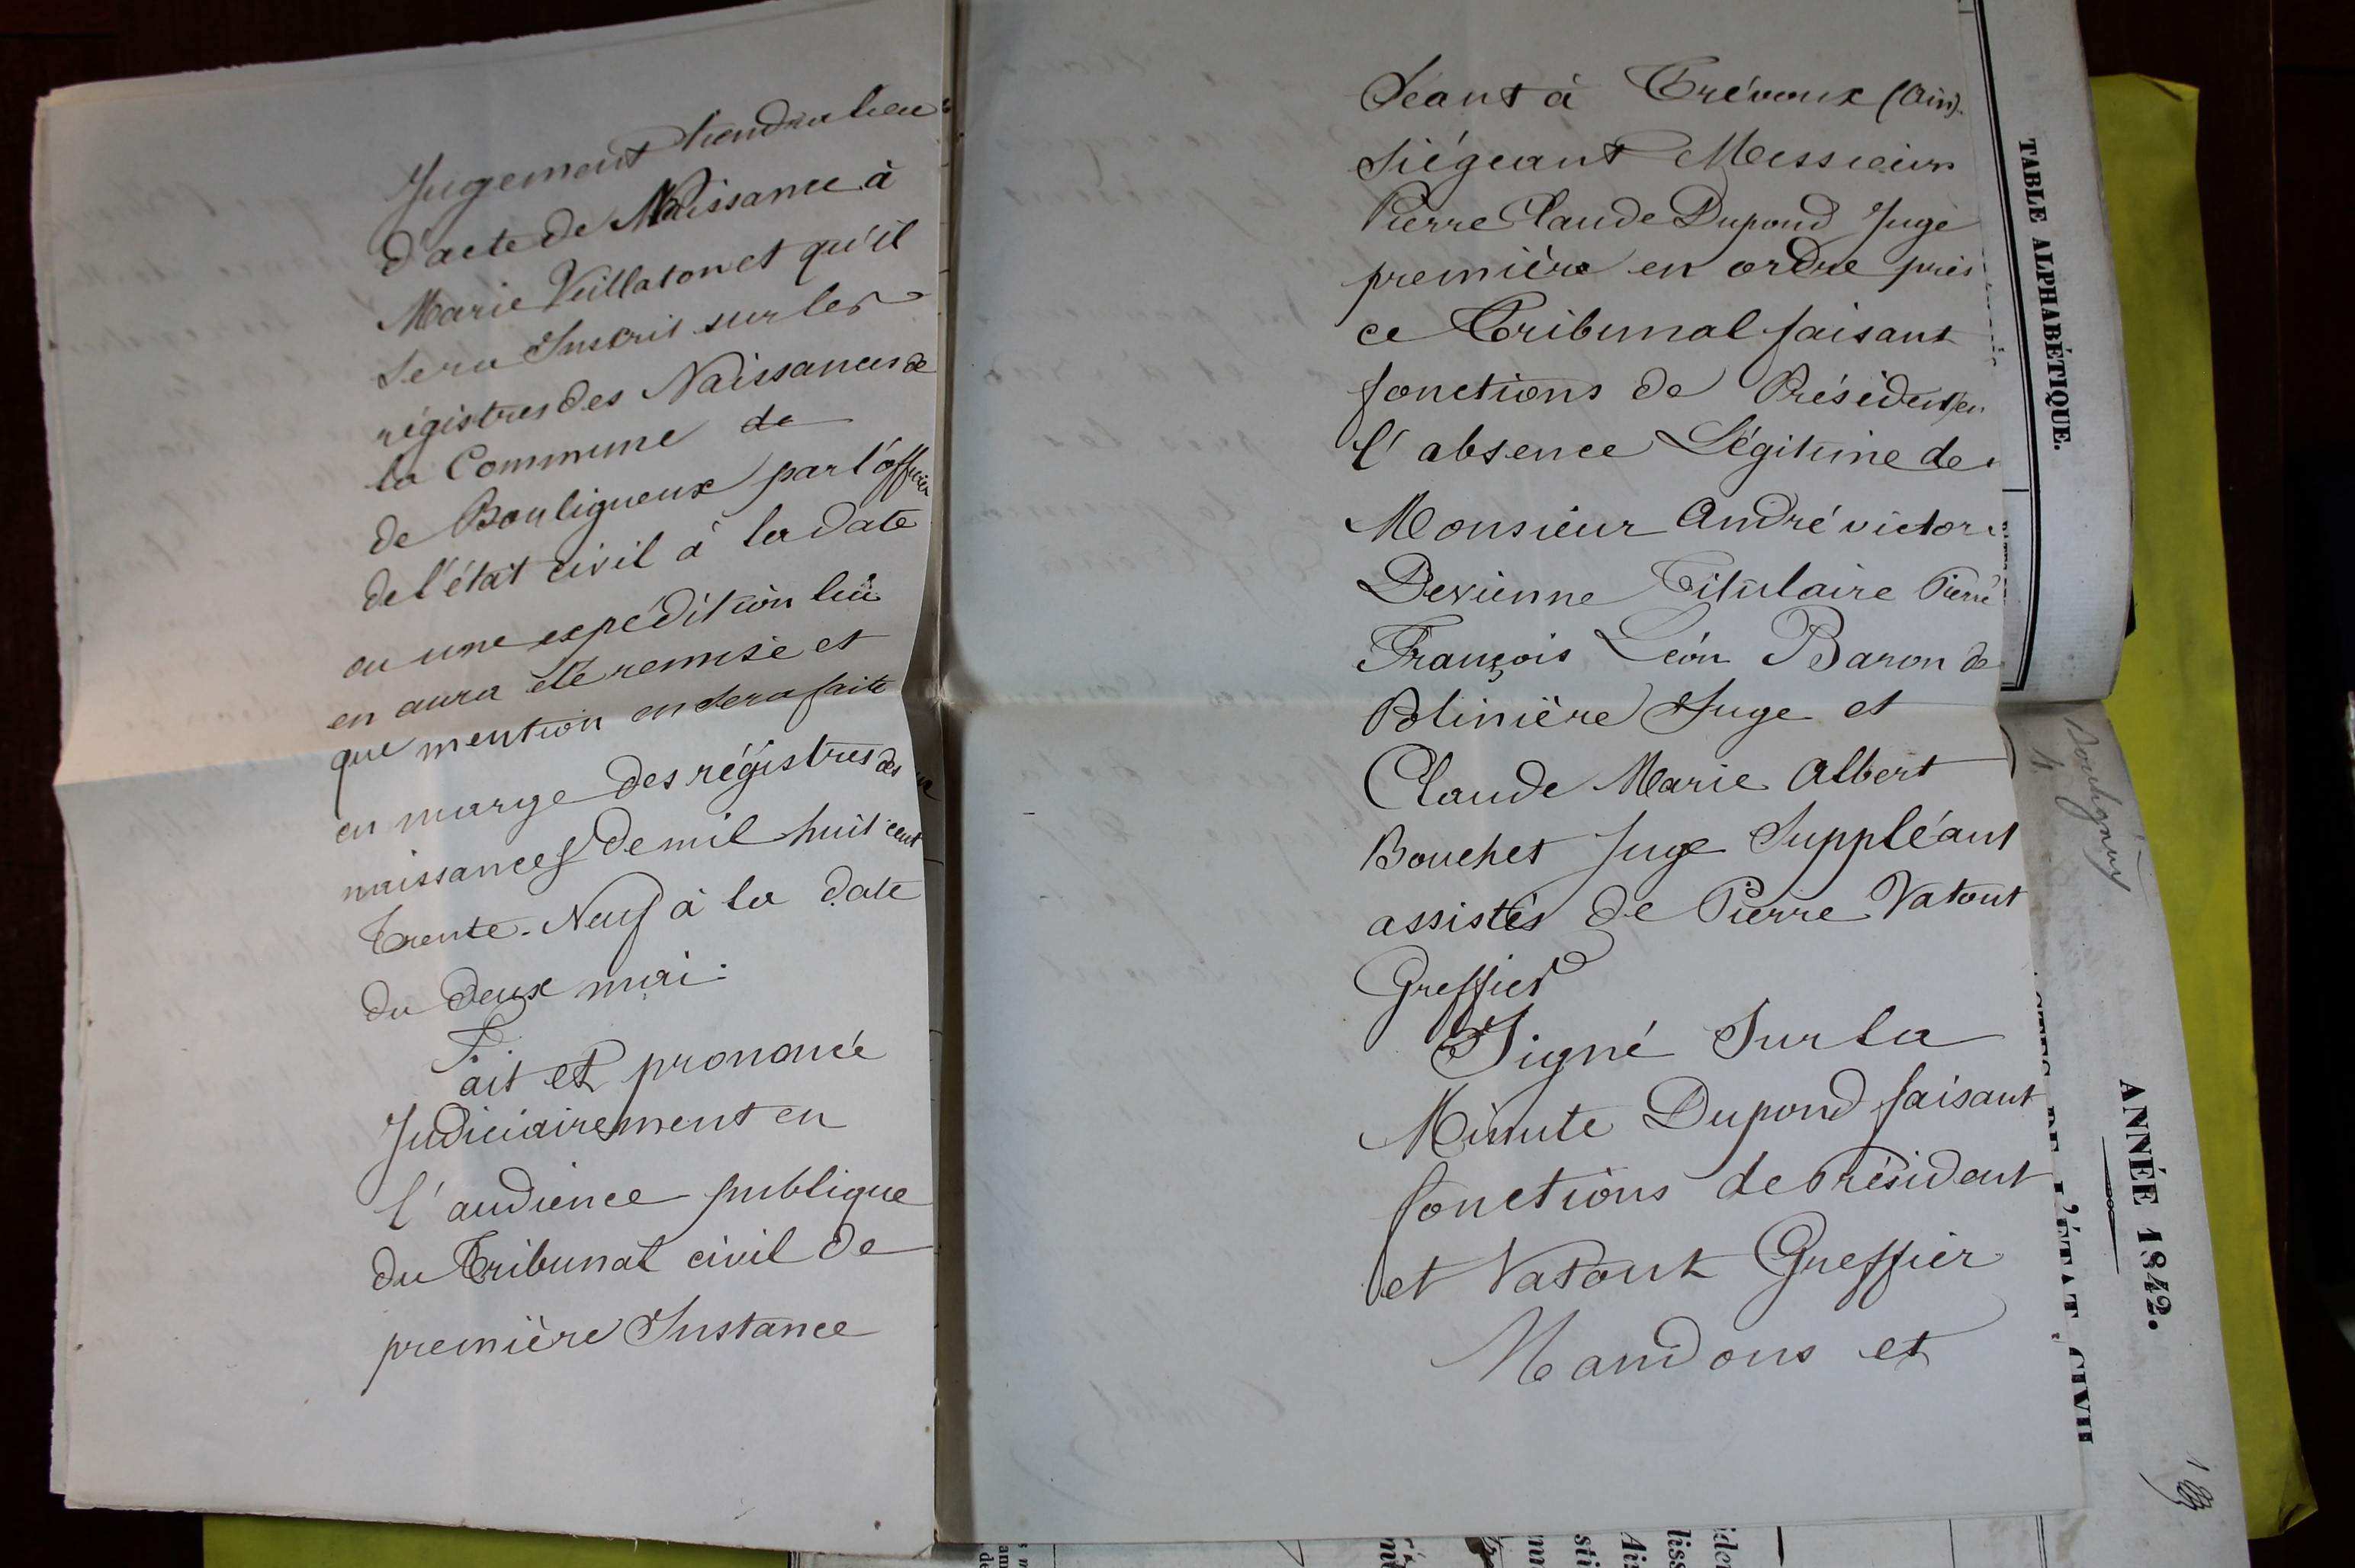 Jugement tiendra lieu
d'acte de Naissance à
Marie Veillaton et qu'il
sera Inscrit sur les
régistres des Naissances de
la Commune de
de Bouligneux par l'officier
de l'état civil à la date
ou une expédition lui
en aura été remise et
que mention en sera faite
en marge des régistres des
naissances de mil huit cent
Trente-Neuf à la date
du deux mai.
Fait et prononcé
Judiciairement en
l'audience publique
du Tribunal civil de
première Instance
Séant à Trévoux (Ain).
Siégeant Messieurs
Pierre Claude Dupond Juge
première en ordre près
ce Tribunal faisant
fonctions de Président en
l'absence Légitime de
Monsieur André victor
Devienne Titulaire Pierre
François Léon Baron de
Polinière Juge et
Claude Marie Albert
Bouchet Juge Suppléant
assistés de Pierre Vatout
Greffier
Signé Sur la
Minute Dupond faisant
fonctions de Président
et Vatout Greffier
Mandons et
TABLE ALPHABÉTIQUE.
Bouligneux
ANNÉE 1842.
DE L'ÉTAT CIVIL